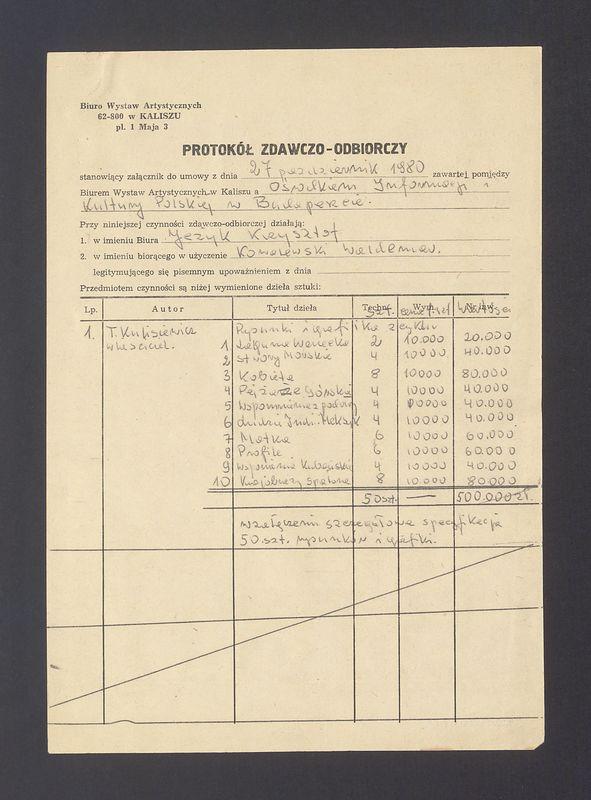 Biuro Wystaw Artystycznych
62-800 w KALISZU
pl. 1 Maja 3
PROTOKÓŁ ZDAWCZO-ODBIORCZY
stanowiący załącznik do umowy z dnia 27 październik 1980 zawartej pomiędzy
Biurem Wystaw Artystycznych w Kaliszu a Ośrodkiem Informacji i
Kultury Polskiej w Budapeszcie.
Przy niniejszej czynności zdawczo-odbiorczej działają:
1. w imieniu Biura Język Krzysztof
2. w imieniu biorącego w użyczenie Kowalewski Waldemar.
legitymującego się pisemnym upoważnieniem z dnia
Przedmiotem czynności są niżej wymienione dzieła sztuki:
Lp. Autor Tytuł dzieła Techn. Wym. Nr inw.
szt. cena 1 szt wartość
1. T. Kulisiewicz Rysunki i grafika z cyklu
właściciel. 1 Laguna Wenecka 2 10.000 20.000
2 Stwory Morskie 4 10000 40.000
3 Kobieta 8 10000 80.000
4 Pejzaże Górskie 4 10000 40.000
5 Wspomnienie z podróży 4 10000 40.000
6 Indi. Meksyk 4 10000 40.000
7 Matka 6 10000 60.000
8 Profile 6 10000 60.000
9 Wspomnienie Kubańskie 4 10000 40.000
10 Krajobrazy Spalone 8 10.000 80000
50 szt. — 500.000 zł.
w załączeniu szczegółowa specyfikacja
50 szt. rysunków i grafiki.